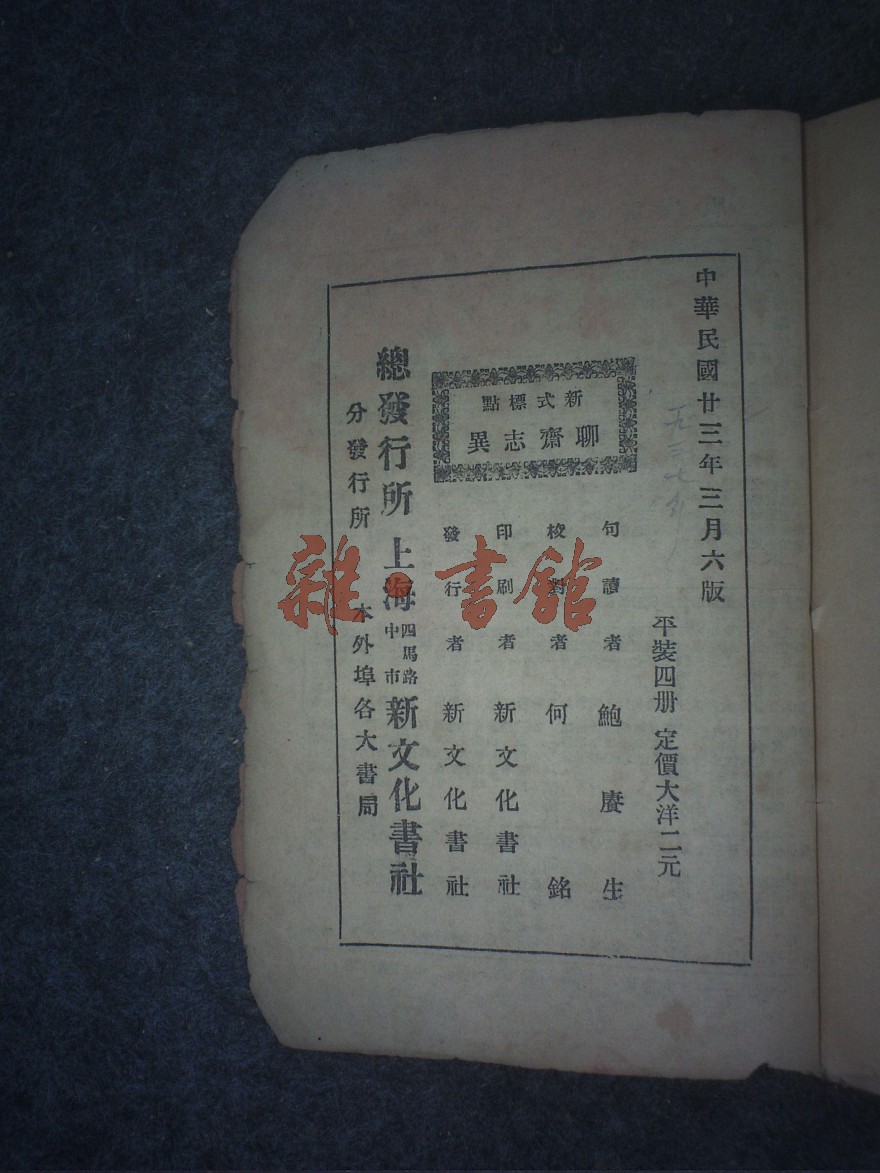 中華民國廿三年三月六版
平裝四册 定價大洋二元
新式標點
聊齋志異
句讀者 鮑賡生
校對者 何銘
印刷者 新文化書社
發行者 新文化書社
總發行所 上海 四馬路中市 新文化書社
分發行所 本外埠各大書局
雜·書館